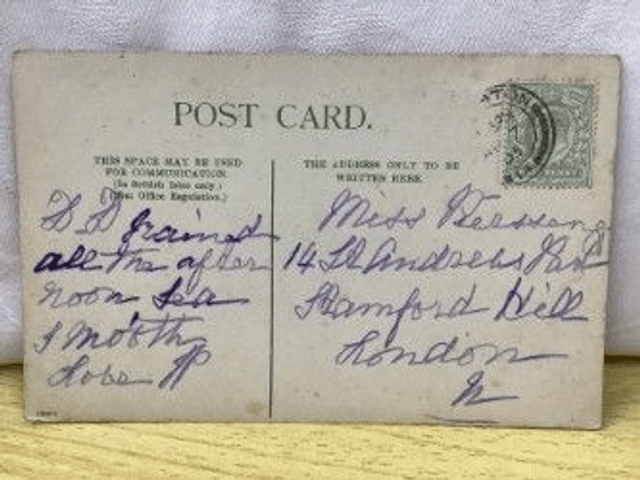 POST CARD.
THIS SPACE MAY BE USED
FOR COMMUNICATION.
(In British Isles only.)
(Post Office Regulation.)
THE ADDRESS ONLY TO BE
WRITTEN HERE.
D D rained
all the after
noon Sea
smooth
Love P
Miss
14 St Andrews
Stamford Hill
London
N